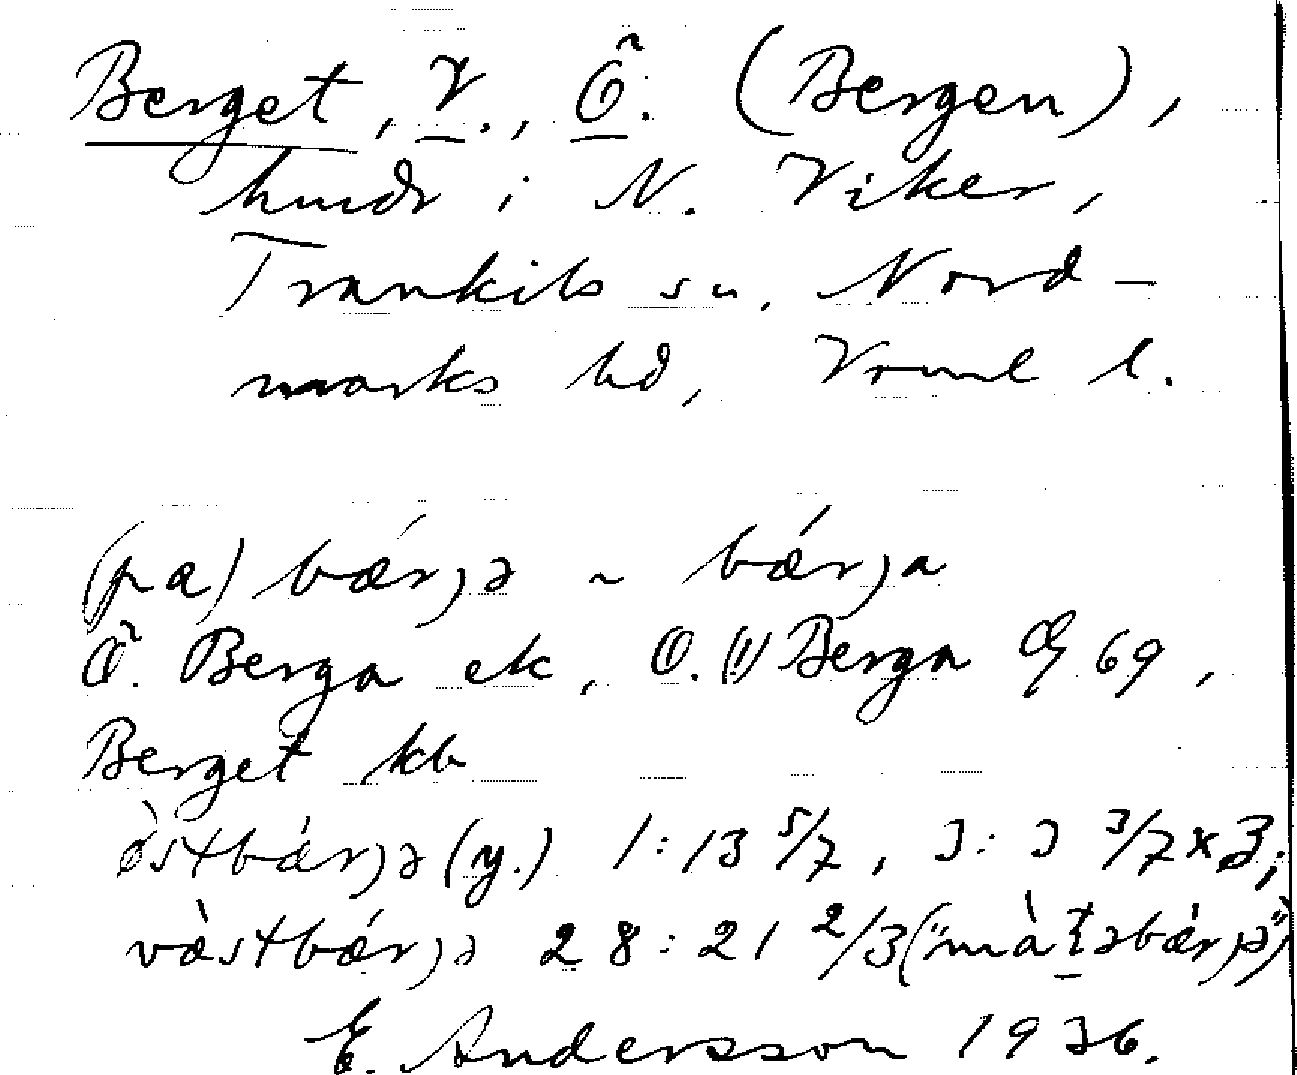 Berget, V., Ö. (Bergen),
hmdr i N. Viker,
Trankils sn, Nord-
marks hd, Vrml l.
(pa) bærjə ~ bærja
Ö. Berga ek, O. (!) Berga Gf 69,
Berget kb
östbærjə (y.) 1:13 5/7, 3:3 3/7 x 3;
västbærjə 28:21 2/3
E. Andersson 1936.